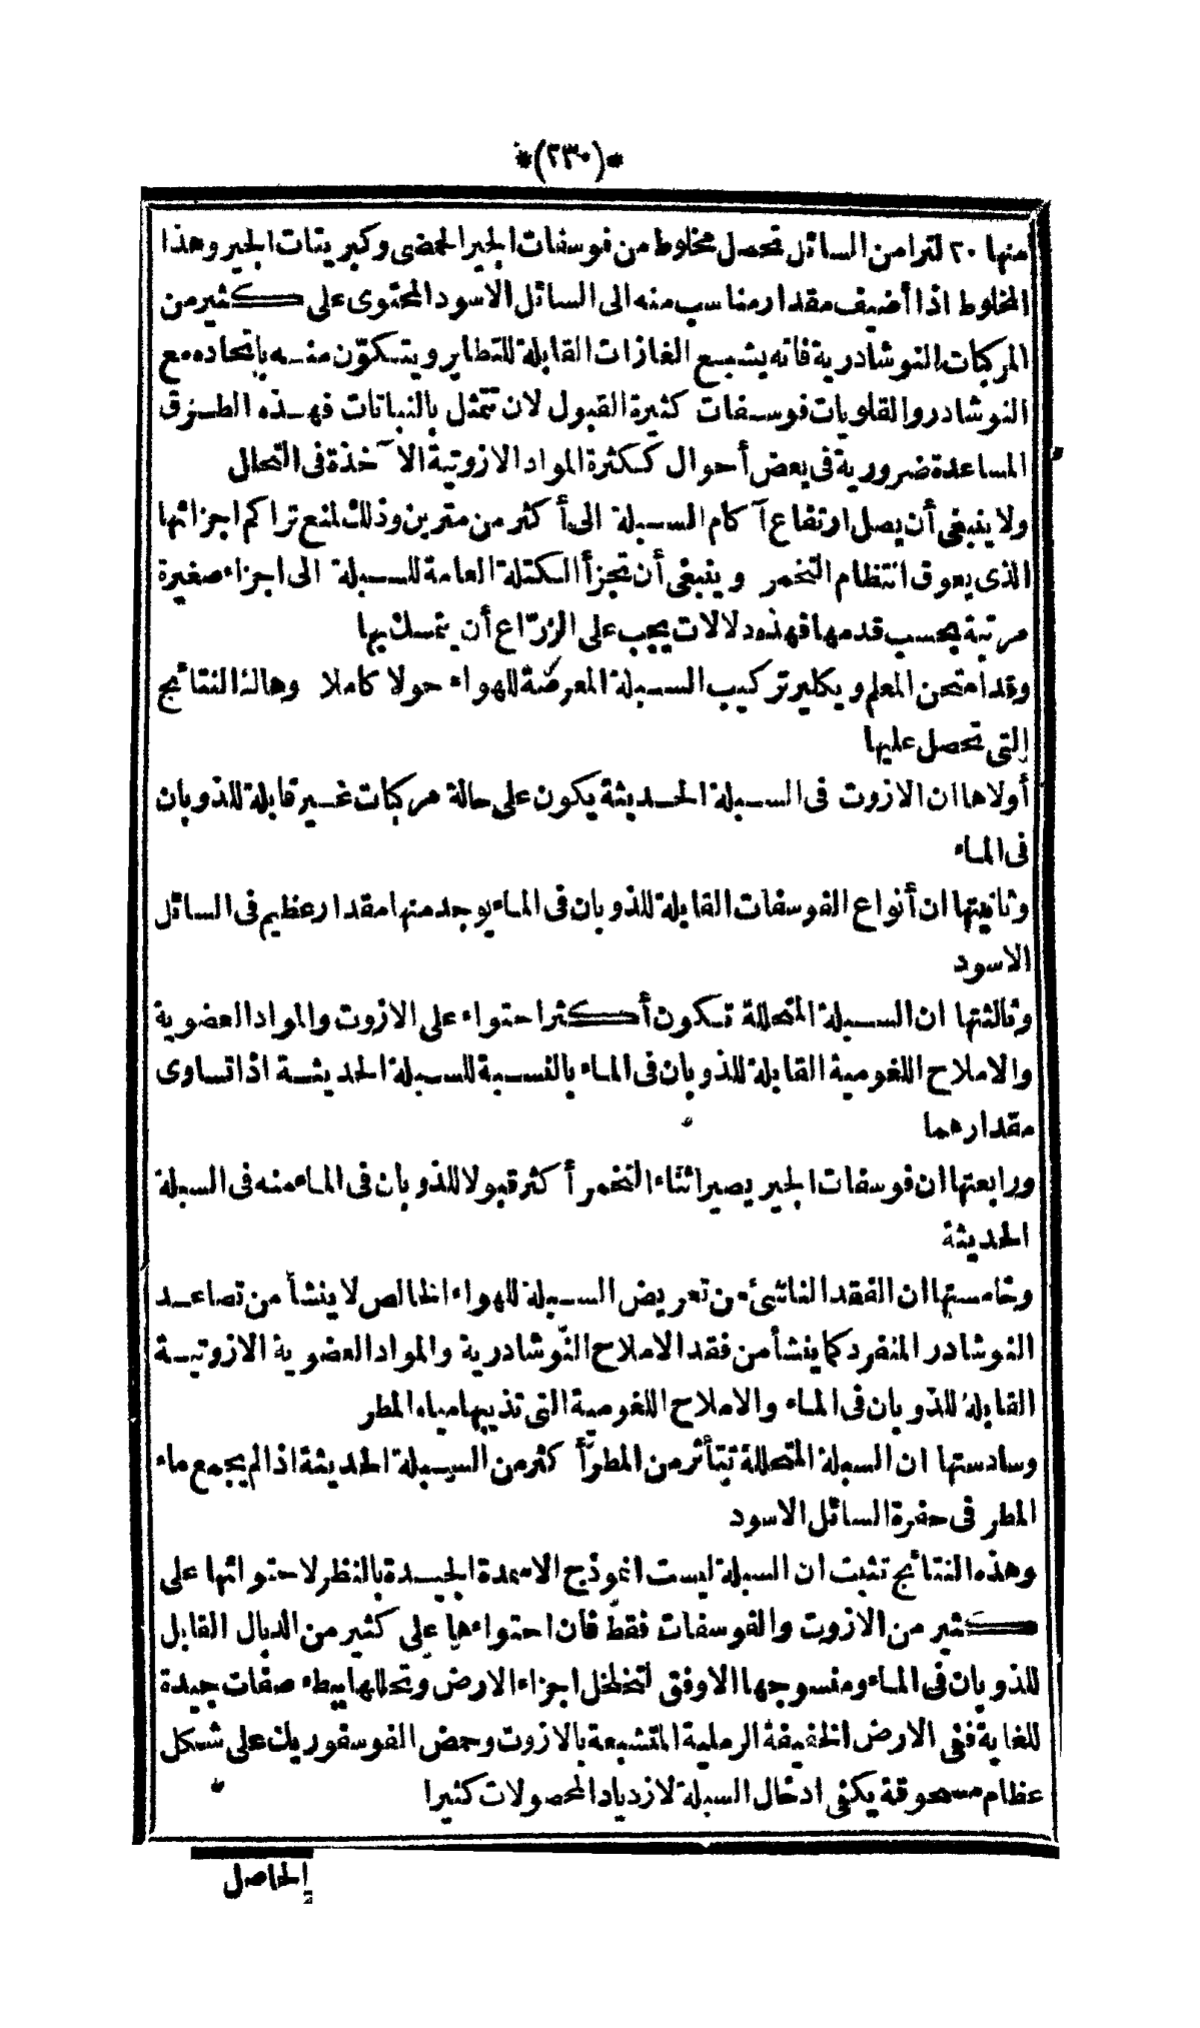 *(٢٣٠)*
منها ٢٠ لترا من السائل تحصل مخلوط من فوسفات الجير الحمضى وكبريتات الجير وهذا
المخلوط اذا أضيف مقدار مناسب منه الى السائل الاسود المحتوى على كثير من
المركبات النوشادرية فانه يشبع الغازات القابلة للتطاير ويتكوّن منه باتحاده مع
النوشادر والقلويات فوسفات كثيرة القبول لان تتمثل بالنباتات فهذه الطرق
المساعدة ضرورية فى بعض أحوال ككثرة المواد الازوتية الآخذة فى التحال
ولا ينبغى أن يصل ارتفاع آكام السبلة الى أكثر من مترين وذلك لمنع تراكم اجزائها
الذى يعوق انتظام التخمر وينبغى أن تجزأ الكتلة العامة للسبلة الى اجزاء صغيرة
مرتبة بحسب قدمها فهذه دلالات يجب على الزرّاع أن يتمسك بها
وقد امتحن المعلم ويكلير تركيب السبلة المعرضة للهواء حولا كاملا وهالك النتائج
التى تحصل عليها
أولاها ان الازوت فى السبلة الحديثة يكون على حالة مركبات غير قابلة للذوبان
فى الماء
وثانيتها ان أنواع الفوسفات القابلة للذوبان فى الماء يوجد منها مقدار عظيم فى السائل
الاسود
وثالثتها ان السبلة المتحللة تكون أكثر احتواء على الازوت والمواد العضوية
والاملاح اللغومية القابلة للذوبان فى الماء بالنسبة للسبلة الحديثة اذا تساوى
مقدارهما
ورابعتها ان فوسفات الجير يصير اثناء التخمر أكثر قبولا للذوبان فى الماء منه فى السبلة
الحديثة
وخامستها ان الفقد الناتئ من تعريض السبلة للهواء الخالص لا ينشأ من تصاعد
النوشادر المنفرد كما ينشأ من فقد الاملاح النوشادرية والمواد العضوية الازوتية
القابلة للذوبان فى الماء والاملاح اللغومية التى تذيبها مياه المطر
وسادستها ان السبلة المتحللة تتأثر من المطر أكثر من السبلة الحديثة اذا لم يجمع ماء
المطر فى حفرة السائل الاسود
وهذه النتائج تثبت ان السبلة ليست انموذج الاسمدة الجيدة بالنظر لاحتوائها على
كثير من الازوت والفوسفات فقط فان احتواءها على كثير من الدبال القابل
للذوبان فى الماء ومنسوجها الاوفق لتخلخل اجزاء الارض وتحللها ببطء صفات جيدة
للغاية ففى الارض الخفيفة الرملية المتشبعة بالازوت وحمض الفوسفوريك على شكل
عظام مسحوقة يكفى ادخال السبلة لازدياد المحصولات كثيرا
الحاصل